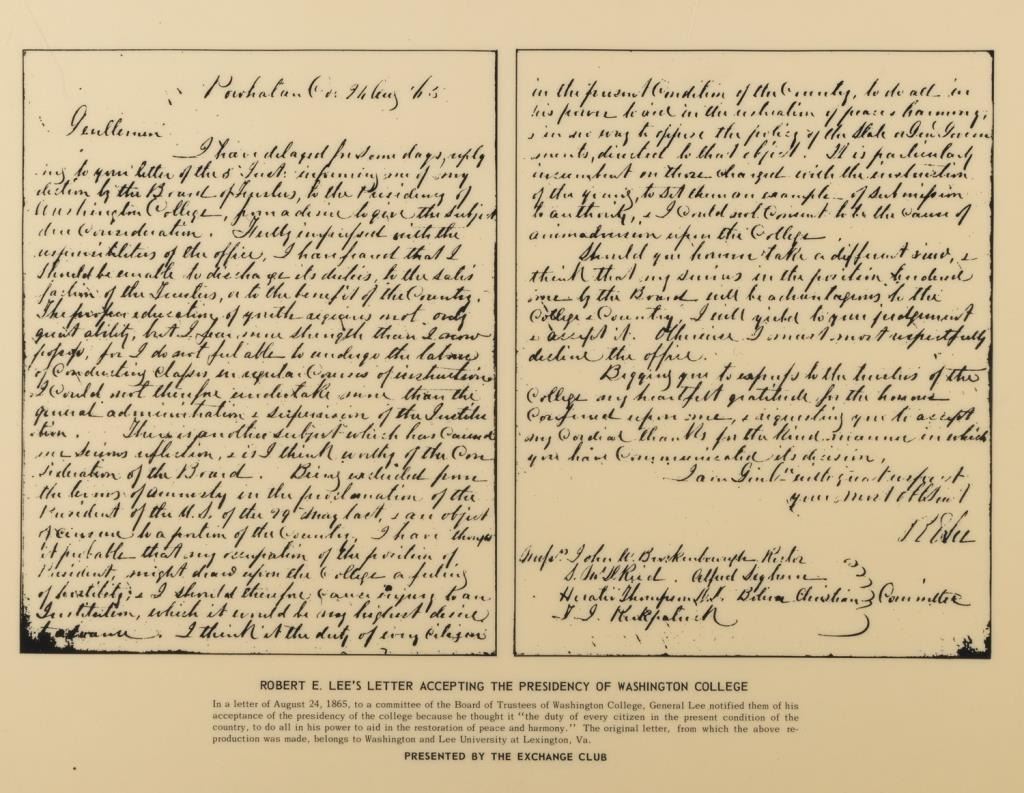 Powhatan Co: 24 Aug '65
Gentlemen
I have delayed for some days, reply
ing to your letter of the 5 Inst: informing me of my
election by the Board of Trustees, to the Presidency of
Washington College, from a desire to give the subject
due Consideration. Fully impressed with the
responsibilities of the office, I have feared that I
should be unable to discharge its duties, to the satis
faction of the Trustees, or to the benefit of the Country.
The proper education of youth requires not only
great ability, but I fear more strength than I now
possess, for I do not feel able to undergo the labour
of Conducting Classes in regular Courses of instruction
I Could not therefore undertake more than the
general administration & supervision of the Institu
tion. There is another subject which has Caused
me Serious reflection, & is I think worthy of the Con
sideration of the Board. Being excluded from
the terms of amnesty in the proclamation of the
President of the U.S. of the 29 May last, & an object
of Censure to a portion of the Country, I have thought
it probable that my occupation of the position of
President, might draw upon the College a feeling
of hostility; & I should therefore Cause injury to an
Institution, which it would be my highest desire
to advance. I think it the duty of every Citizen
in the present Condition of the Country, to do all in
his power to aid in the restoration of peace & harmony,
& in no way to oppose the policy of the State or Gen: Govern
ments, directed to that object. It is particularly
incumbent on those charged with the instruction
of the young, to set them an example of submission
to authority, & I Could not Consent to be the Cause of
animadversion upon the College
Should you however take a different view, &
think that my services in the position tendered
me by the Board will be advantageous to the
College & Country, I will yield to your judgement
& accept it. Otherwise I must most respectfully
decline the office.
Begging you to express to the trustees of the
College my heartfelt gratitude for the honour
Conferred upon me, & requesting you to accept
my Cordial thanks for the kind manner in which
you have Communicated its decision,
I am Gentn with great respect
your most obt Servt
R E Lee
Messrs John W. Brockenbrough Rector
S. McD Reid. Alfred Leyburn
Horatio Thompson D.D. Bolivar Christian } Committee
T. J. Kirkpatrick
ROBERT E. LEE'S LETTER ACCEPTING THE PRESIDENCY OF WASHINGTON COLLEGE
In a letter of August 24, 1865, to a committee of the Board of Trustees of Washington College, General Lee notified them of his
acceptance of the presidency of the college because he thought it "the duty of every citizen in the present condition of the
country, to do all in his power to aid in the restoration of peace and harmony." The original letter, from which the above re-
production was made, belongs to Washington and Lee University at Lexington, Va.
PRESENTED BY THE EXCHANGE CLUB